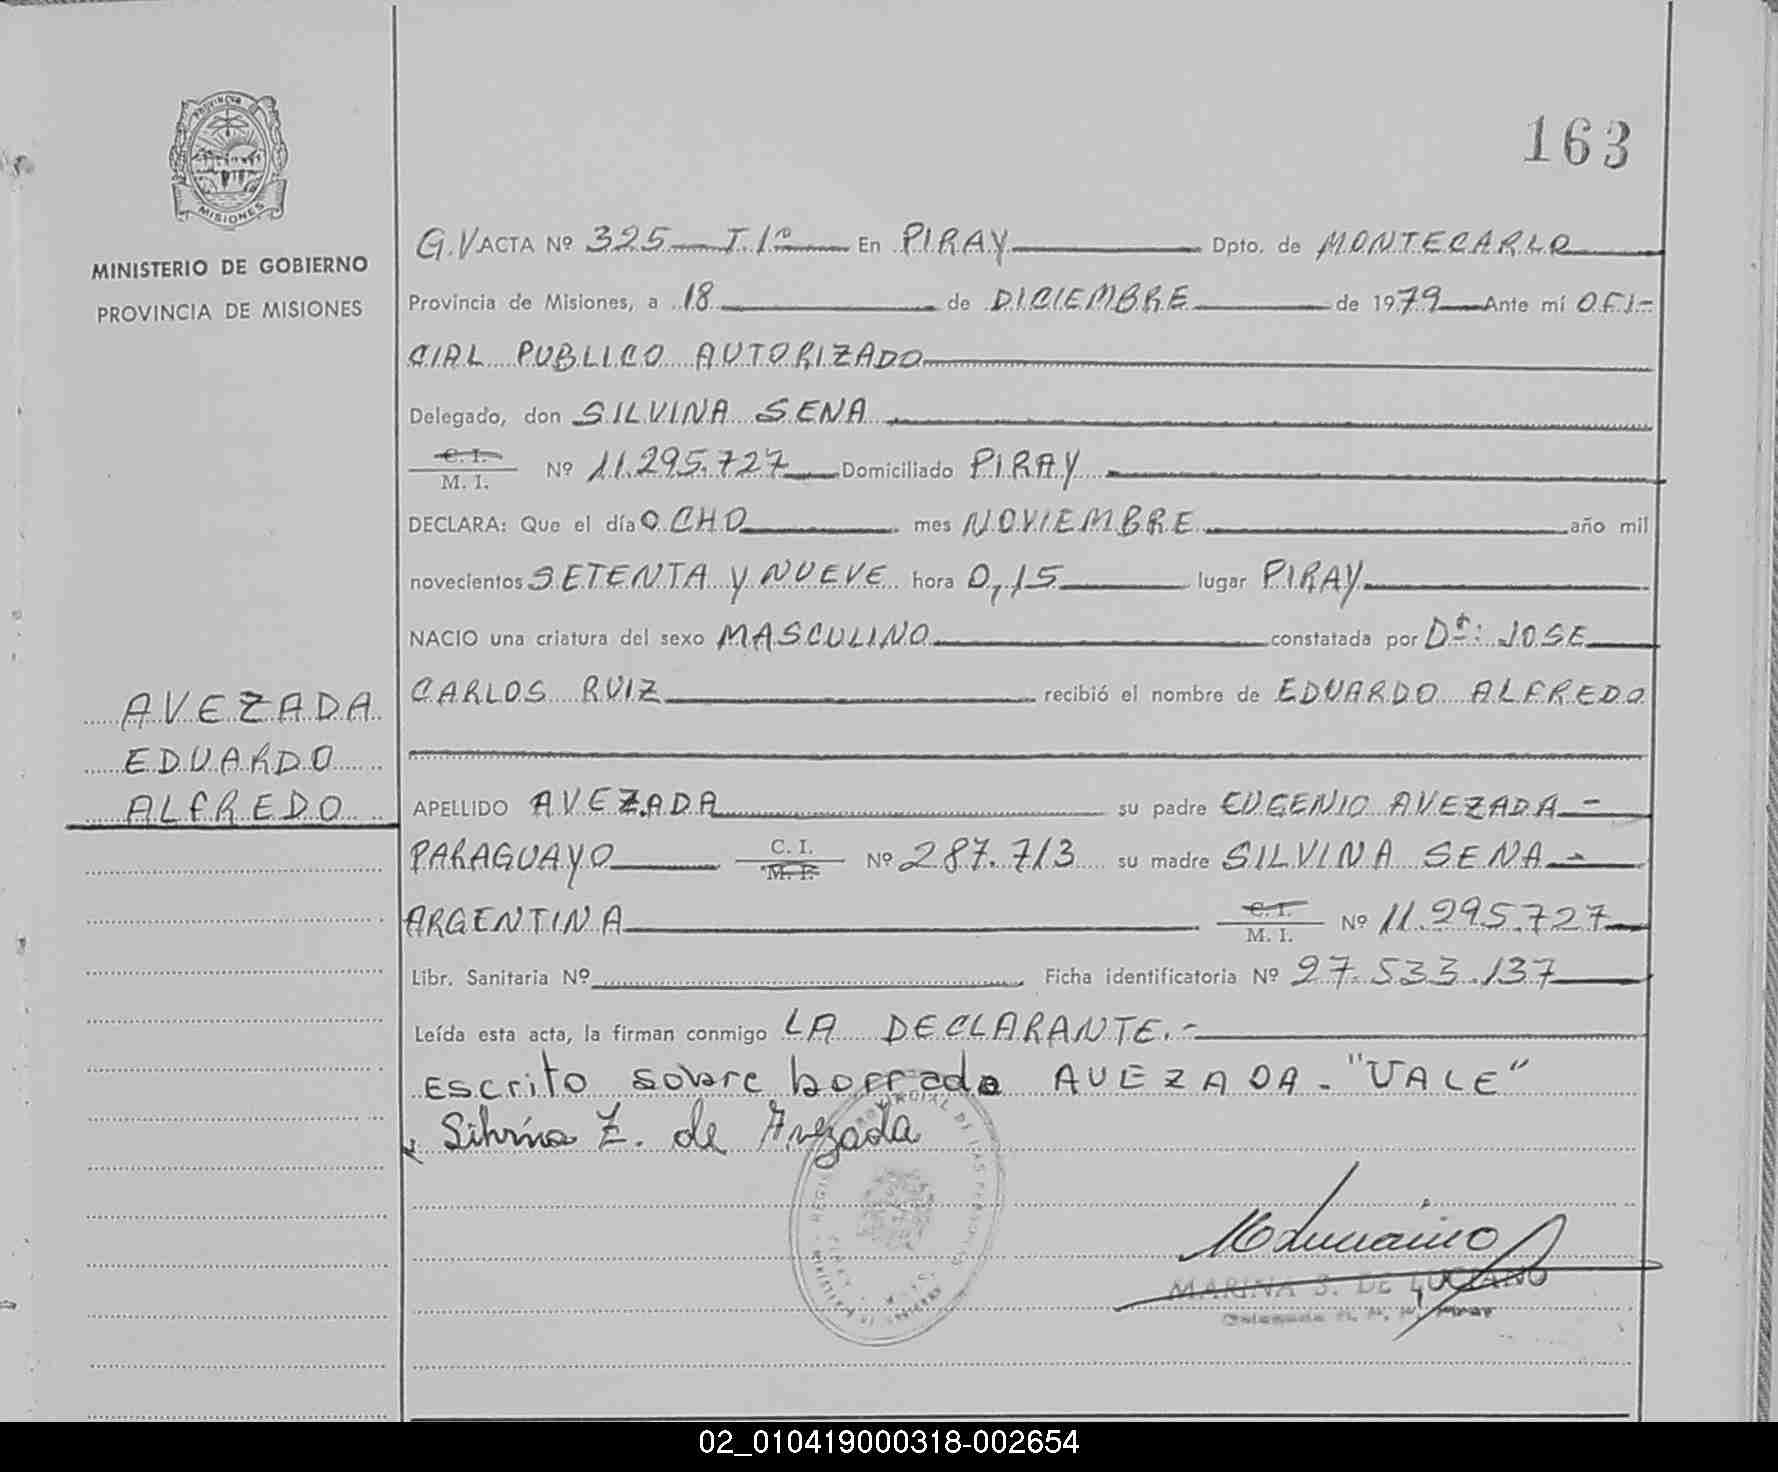 163
PROVINCIA
MISIONES
MINISTERIO DE GOBIERNO
PROVINCIA DE MISIONES
G.V ACTA Nº 325 T.1º En PIRAY Dpto. de MONTECARLO
Provincia de Misiones, a 18 de DICIEMBRE de 1979 Ante mí OFI-
CIAL PUBLICO AUTORIZADO
Delegado, don SILVINA SENA
C. I.
M. I. Nº 11.295.727 Domiciliado PIRAY
DECLARA: Que el día OCHO mes NOVIEMBRE año mil
novecientos SETENTA Y NUEVE hora 0,15 lugar PIRAY
NACIO una criatura del sexo MASCULINO constatada por Dr: JOSE
CARLOS RUIZ recibió el nombre de EDUARDO ALFREDO
AVEZADA
EDUARDO
ALFREDO
APELLIDO AVEZADA su padre EUGENIO AVEZADA -
PARAGUAYO C. I. M. I. Nº 287.713 su madre SILVINA SENA -
ARGENTINA C. I. M. I. Nº 11.295.727
Libr. Sanitaria Nº Ficha identificatoria Nº 27.533.137
Leída esta acta, la firman conmigo LA DECLARANTE.-
Escrito sobre borrado AVEZADA - "VALE"
Silvina Z. de Avezada
MARINA S. DE LUCIANO
02_010419000318-002654